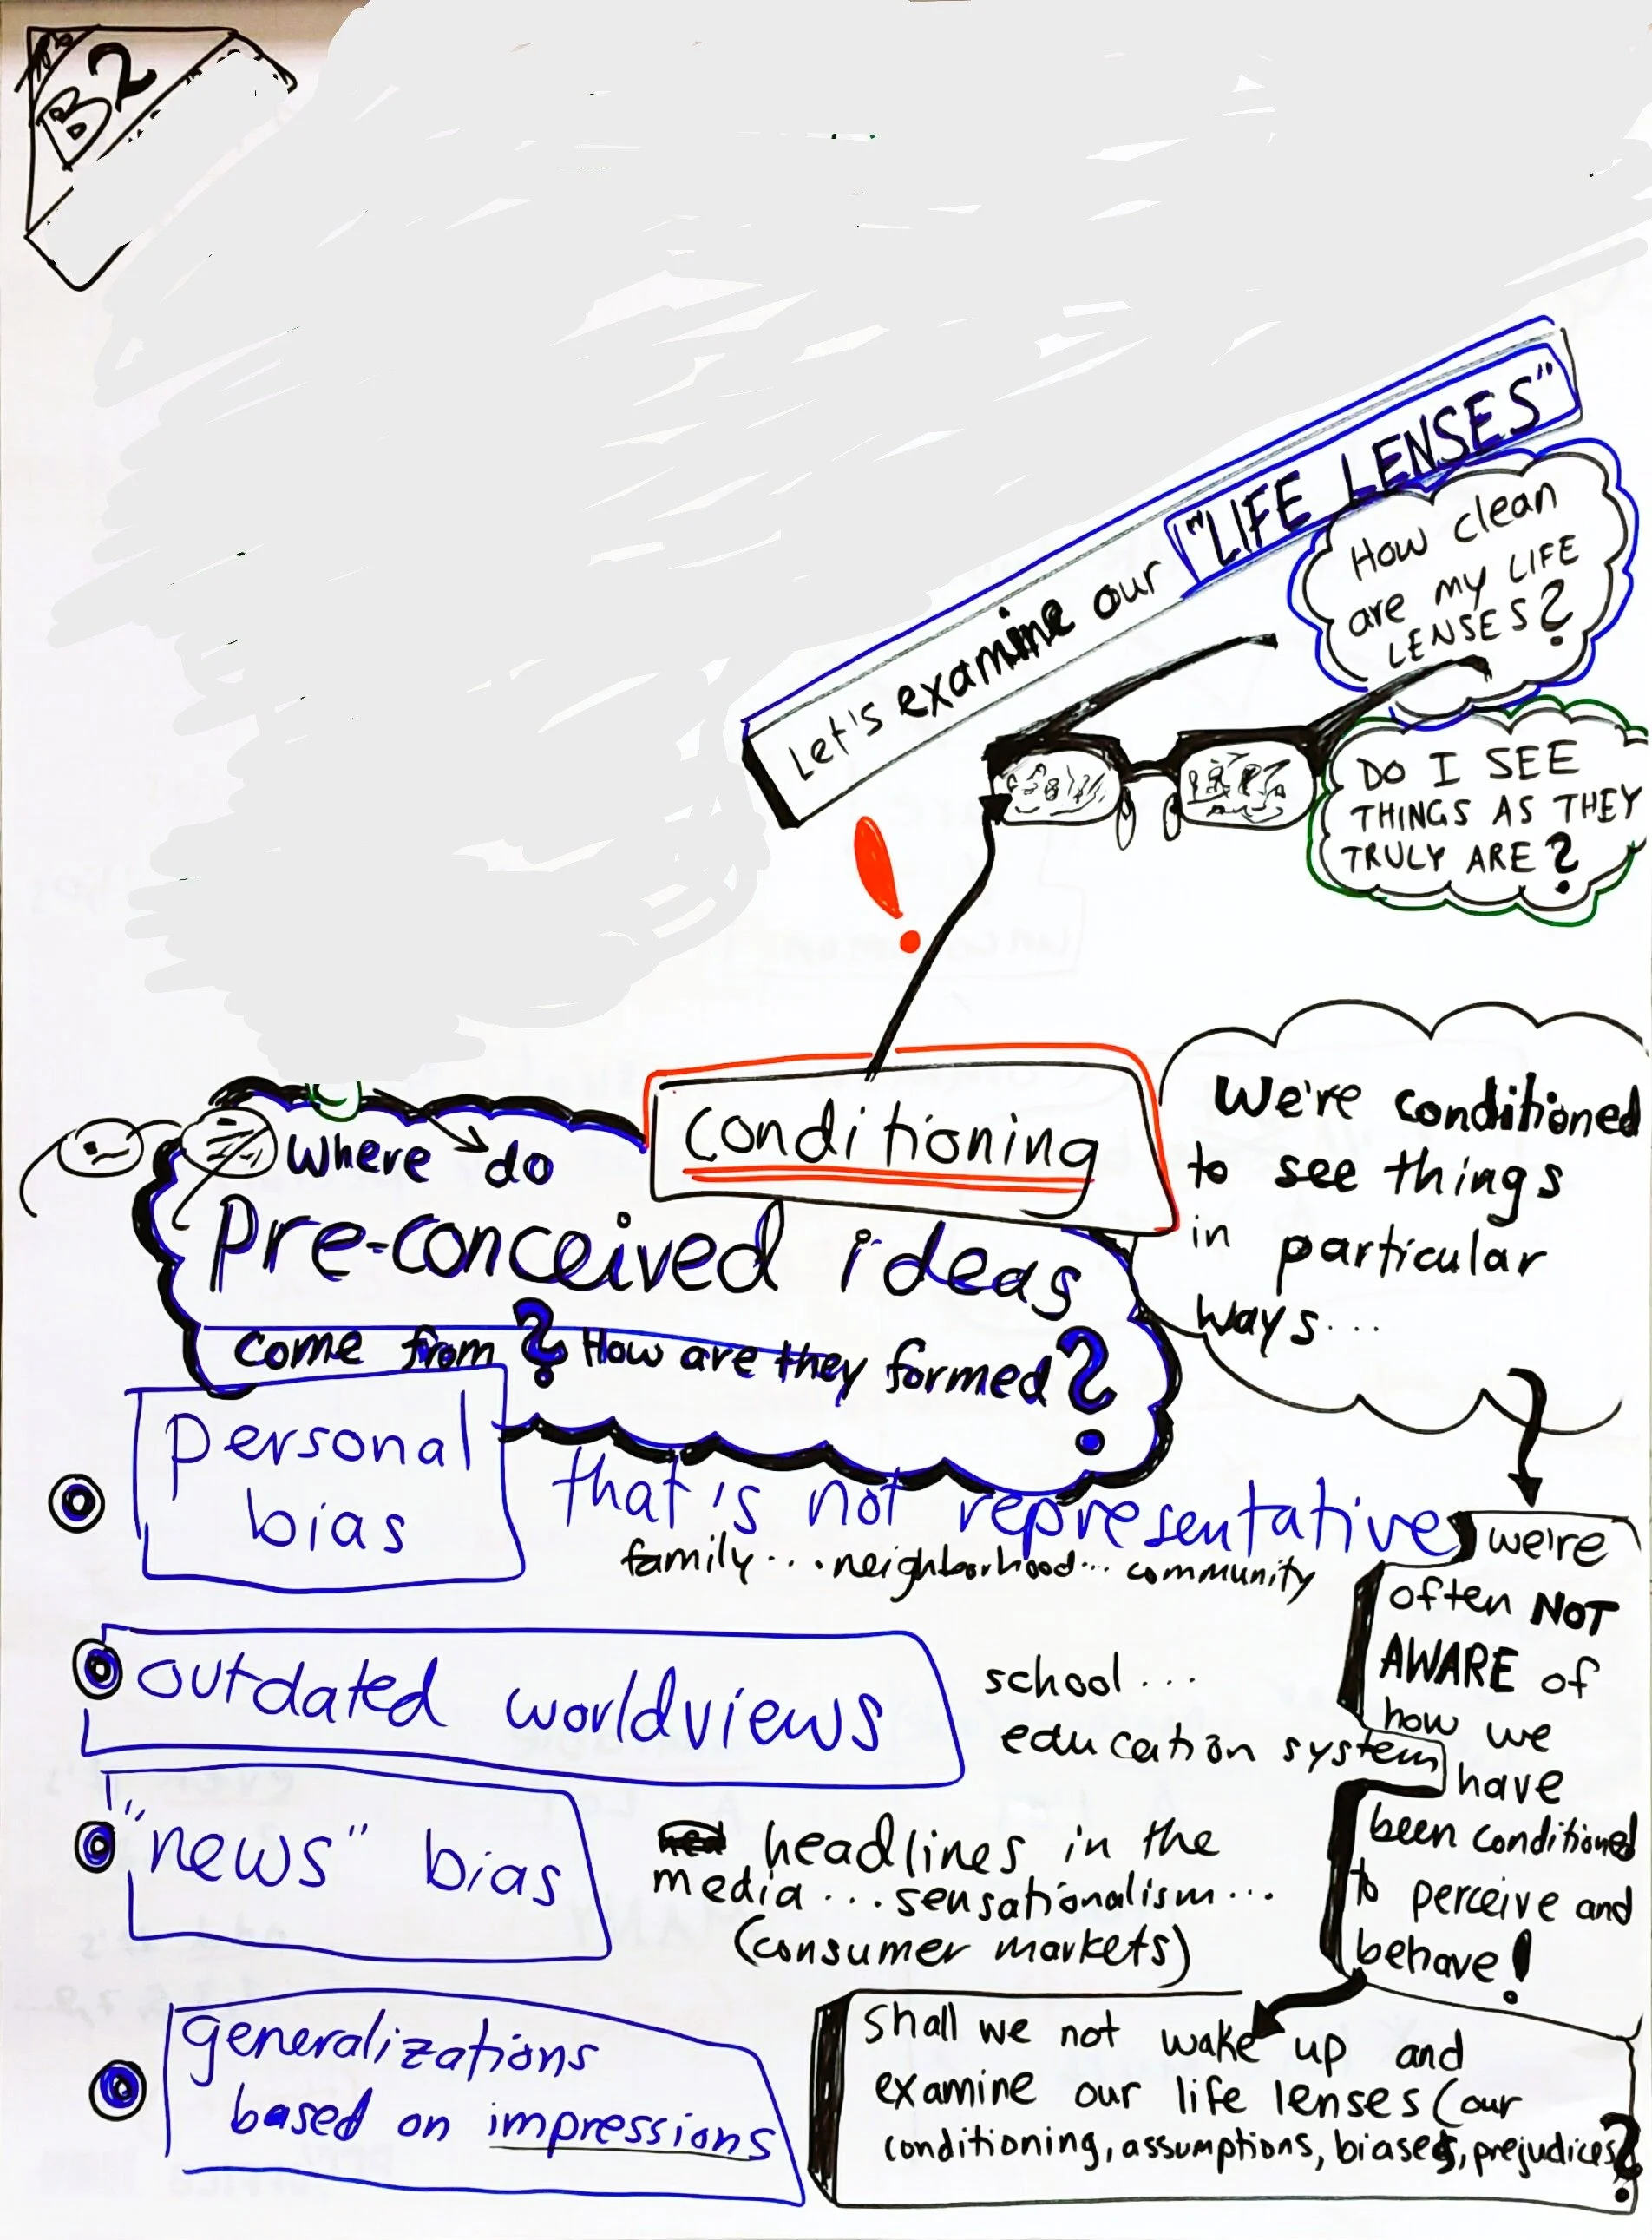 B2
Let's examine our "LIFE LENSES"
How clean
are my LIFE
LENSES?
DO I SEE
THINGS AS THEY
TRULY ARE?
!
conditioning
We're conditioned
to see things
in particular
ways...
Where do
Pre-conceived ideas
come from? How are they formed?
personal
bias
that's not representative
family... neighborhood... community
outdated worldviews
school...
education system
"news" bias
headlines in the
media... sensationalism...
(consumer markets)
generalizations
based on impressions
we're
often NOT
AWARE of
how we
have
been conditioned
to perceive and
behave!
Shall we not wake up and
examine our life lenses (our
conditioning, assumptions, biases, prejudices?